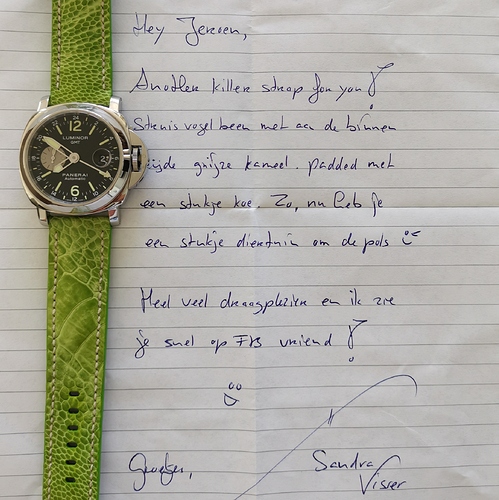 Hey Jeroen,
Another killer strap for you!
Struis vogel been met aan de binnen
zijde grijze kameel. padded met
een stukje koe. Zo, nu heb je
een stukje dierentuin om de pols
Heel veel draagplezier en ik zie
je snel op FB vriend!
Groetjes,
Sandra
Visser
24
12
LUMINOR
GMT
PANERAI
Automatic
6